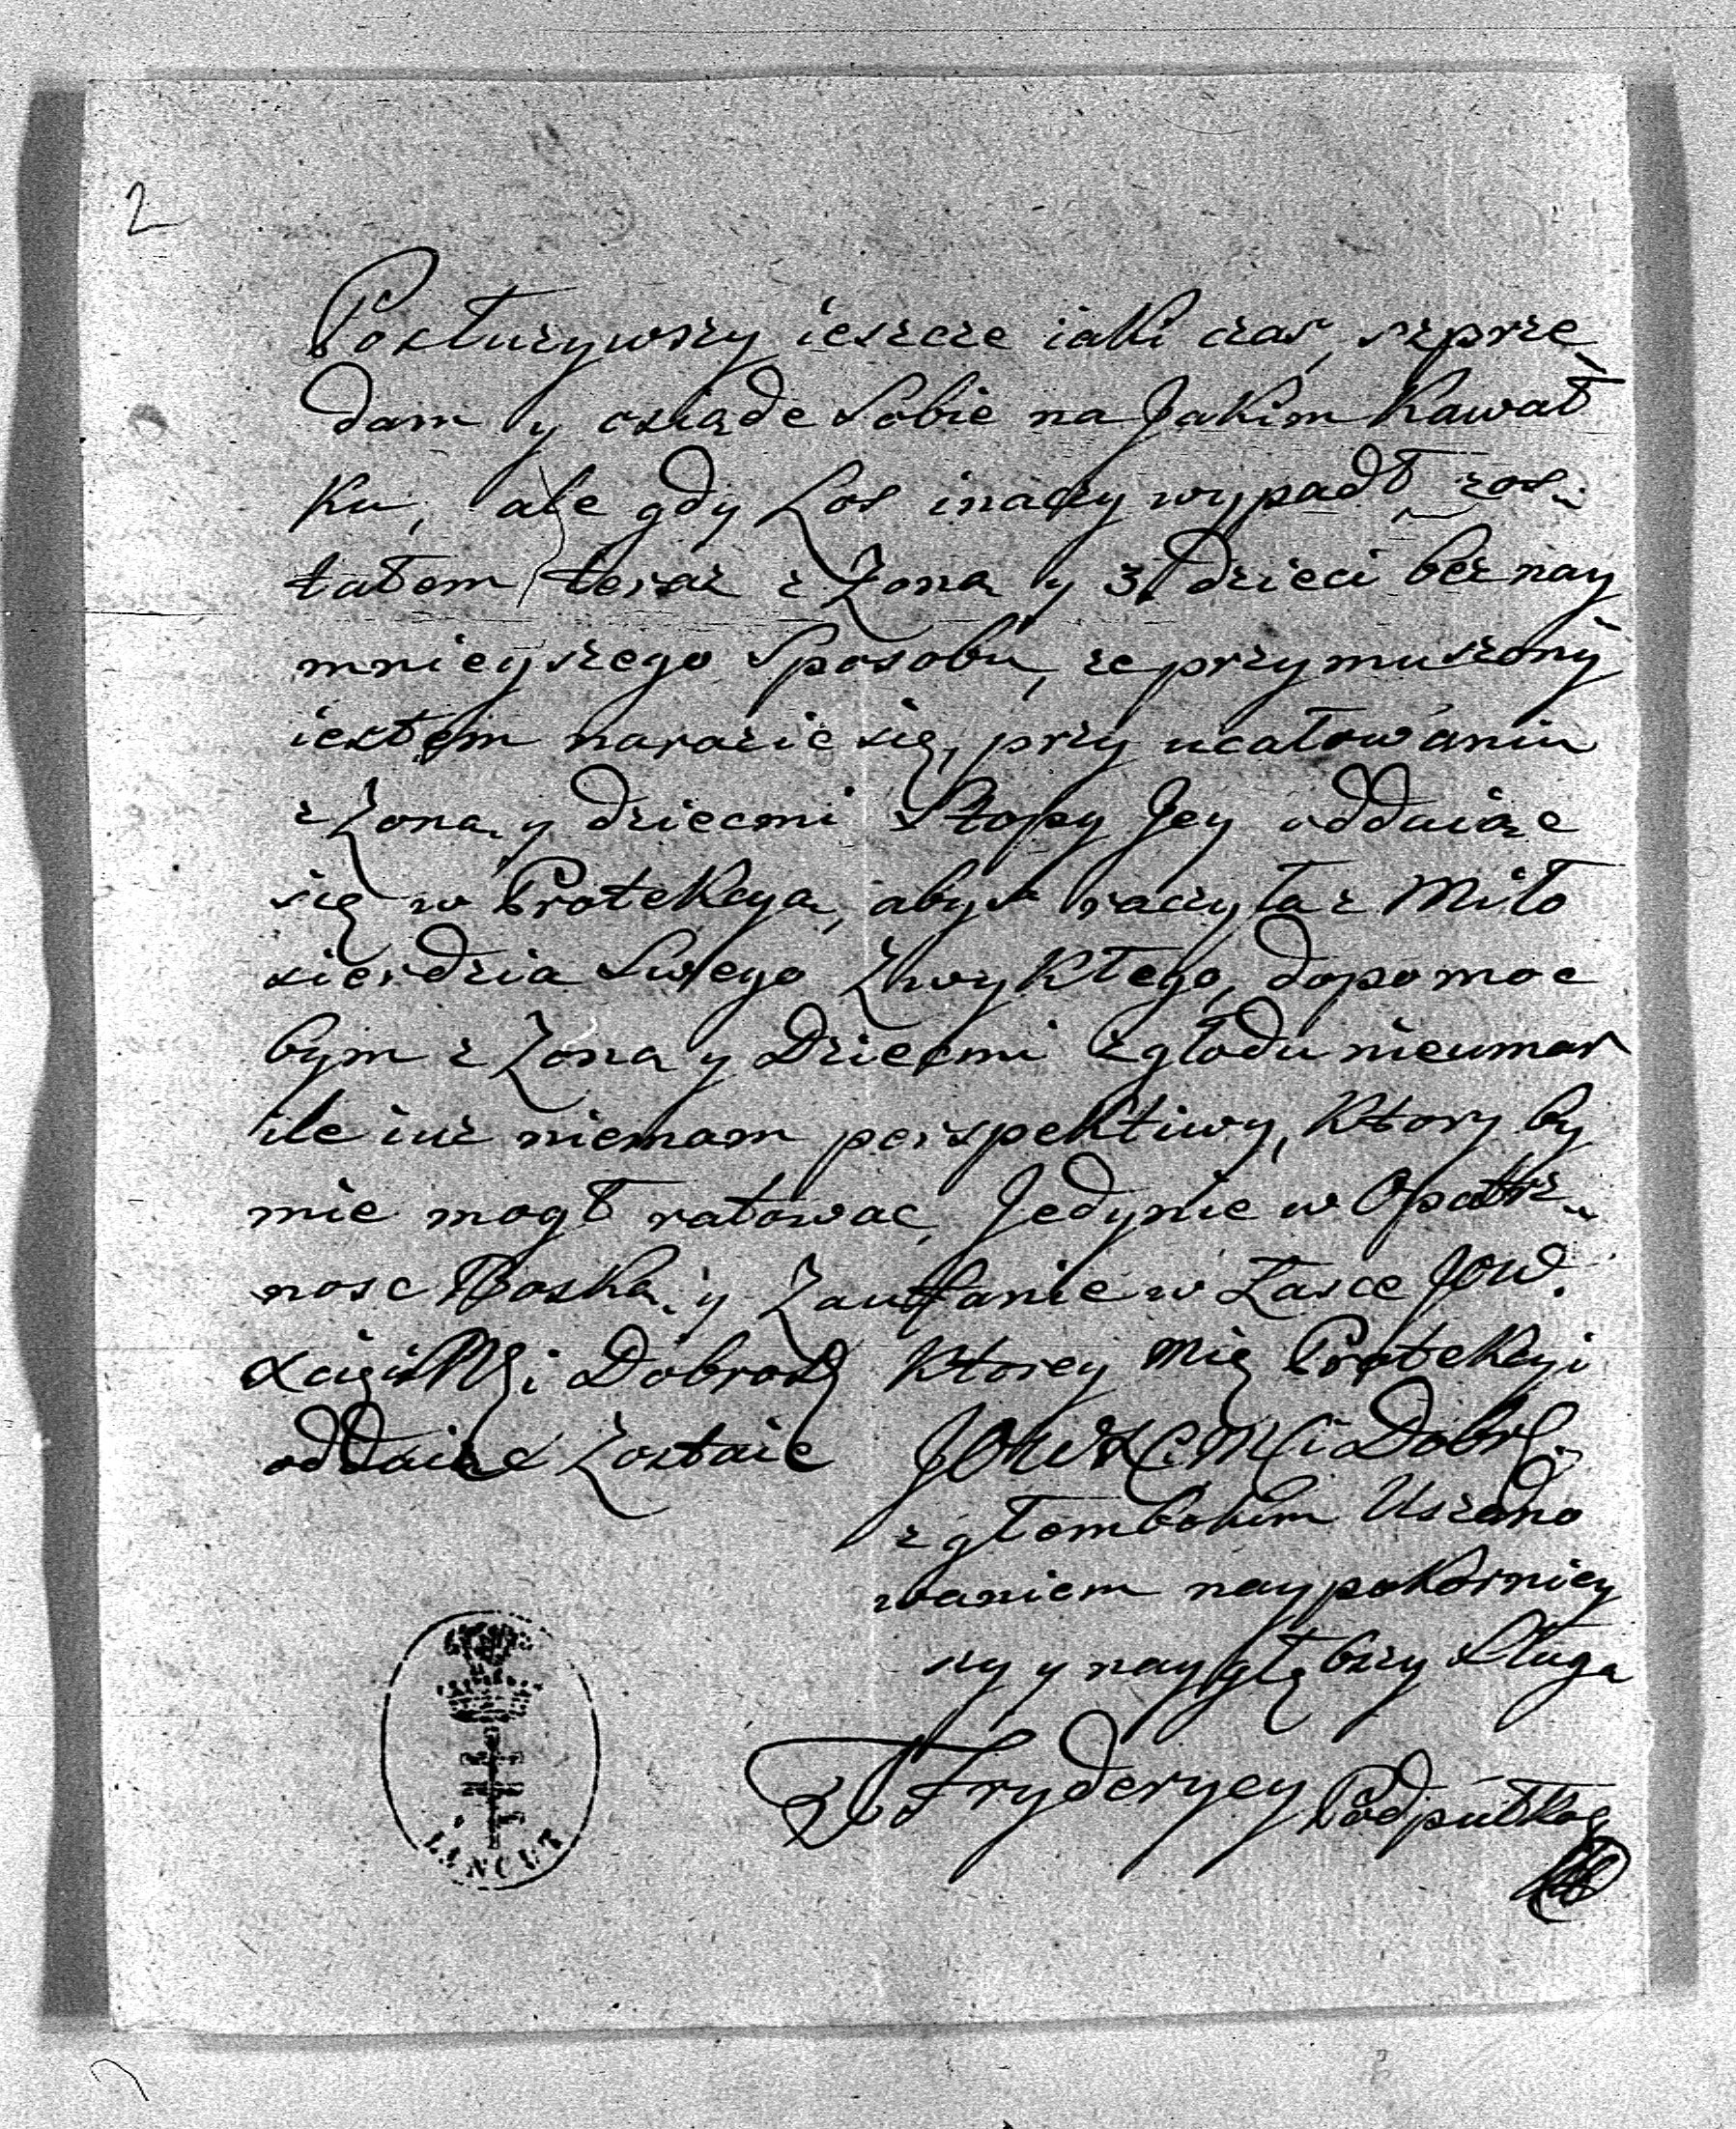 2
Posłuzywszy ieszcze iaki czas, szprze
dam y osiąde Sobie na Jakim Kawał
ku, ale gdy Los inaczy wypadł, zos
tałem teraz z Zoną y 3. dzieci bez nay
mnieyszego Sposobu, ze przymuszony
iestem narazic się, przy ucałowaniu
z Zoną y dziecmi Stopy Jey oddaiąc
się w Protekcyą, abys raczyła z Miło
sierdzia Swego Zwykłego, dopomoc
bym z Zoną y Dziecmi z głodu nieumar
ile iuz niemam perspektiwy, Ktory by
mie mogł ratowac, Jedynie w Opatrz
nosc Boską, y Zaufanie w Łasce JOW.
Mci Dobrodz Ktorey mię Protekcyi
oddaiąc Zostaie JOW Mci Dobr
z głembokim Uszano
waniem naypokorniey
szy y naygłębszy Sługa
Fryderycy Podpułko
ŁAŃCUT